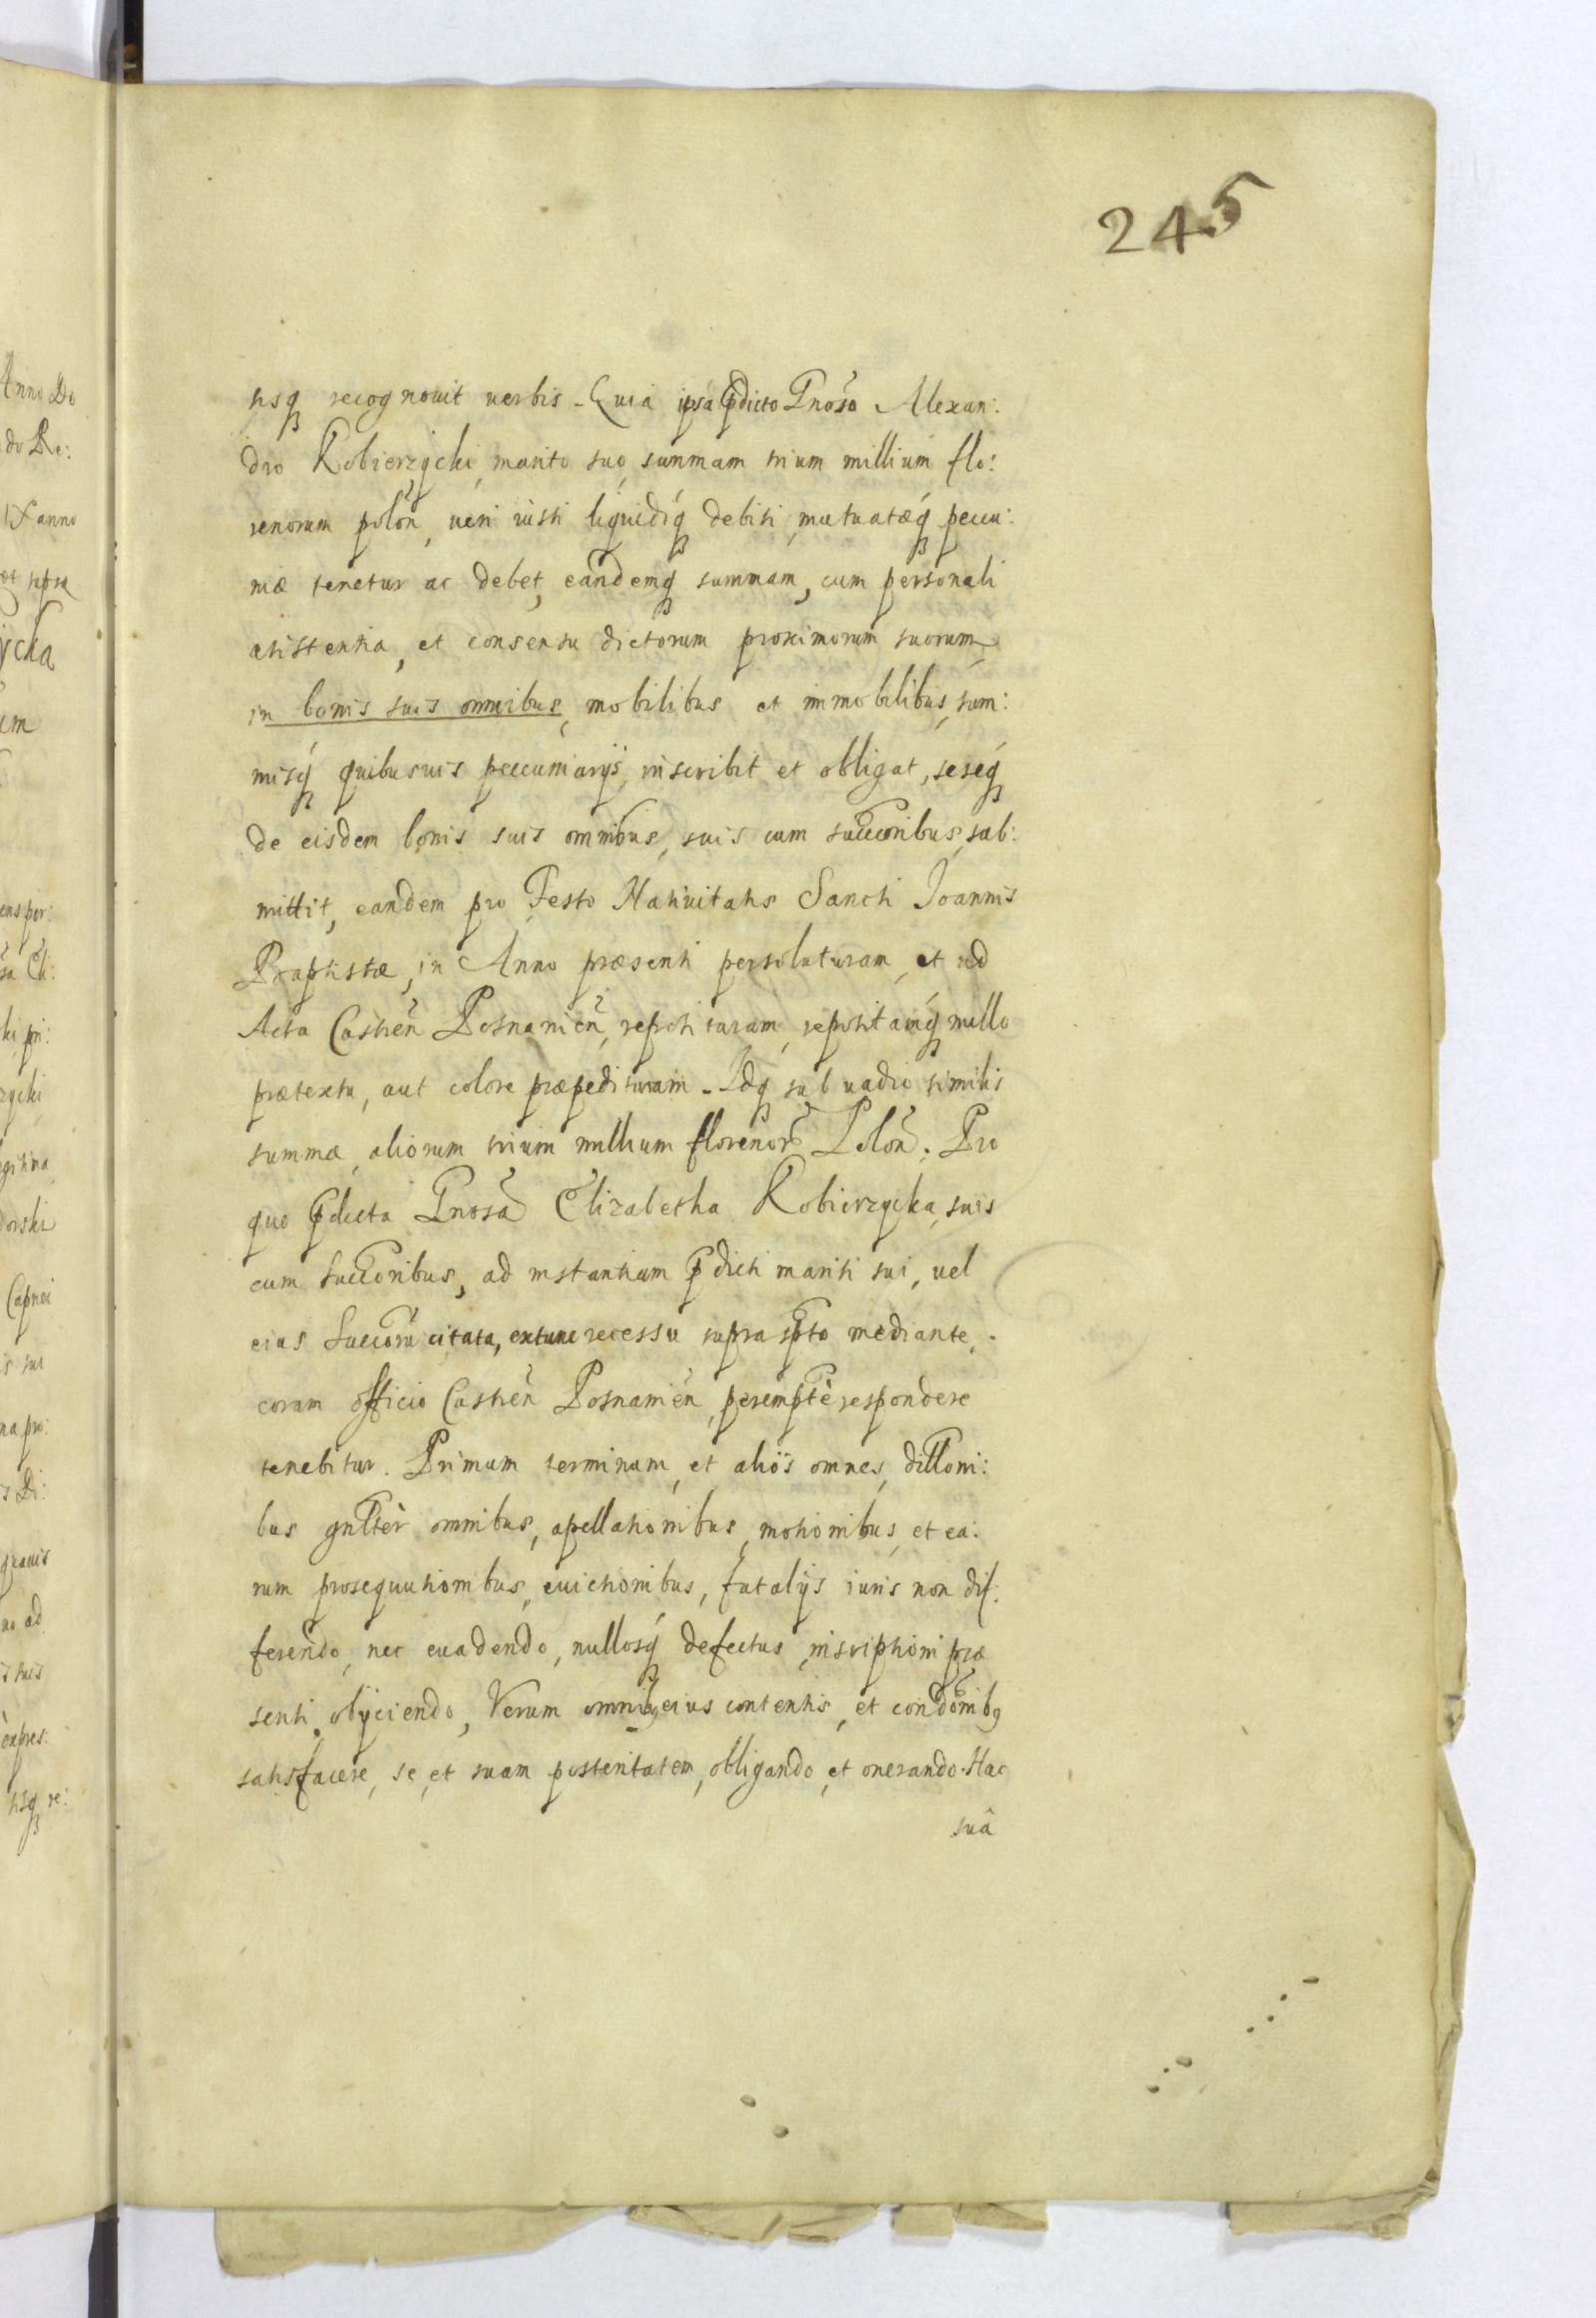 245
tisq recognouit uerbis - Quia ipsa pdicto Gnoso Alexan:
dro Kobierzycki, marito suo, summam trium millium flo:
renorum polon, ueri iusti liquidiq debiti, mutuatæq pecu:
niæ tenetur ac debet, eandemq summam, cum personali
assistentia, et consensu dictorum proximorum suorum,
in bonis suis omnibus, mobilibus et immobilibus, sum:
misq quibusuis pecuniarijs, inscribit et obligat, seseq
de eisdem bonis suis omnibus, suis cum succoribus, sub:
mittit, eandem pro Festo Natiuitatis Sancti Joannis
Baptistæ, in Anno præsenti persoluturam, et ad
Acta Castren Posnanien, reposituram, repositamq nullo
prætextu, aut colore præpedituram - Idq sub uadio similis
summæ, aliorum trium millium florenor Polon. Pro
quo pdicta Gnosa Elizabetha Kobierzycka, suis
cum succoribus, ad instantiam pdicti mariti sui, uel
eius succoru citata, extunc recessu supra spto mediante,
coram officio Castren Posnanien, perempte respondere
tenebitur. Primum terminum, et alios omnes, dilloni:
bus gnlter omnibus, apellationibus, motionibus, et ea:
rum prosequutionibus, euictionibus, fatalijs iuris non dif:
ferendo, nec euadendo, nullosq defectus, inscriptioni præ
senti, obijciendo, Verum omnibq eius contentis, et condonibq
satisfacere, se, et suam posteritatem, obligando, et onerando. Hac
suâ
Anno Do
do Re:
anno
et ipsa
ycka
um
ens per:
sa Eli:
ki pri:
zycki
gitima
dorski
Capnei
is sui
na pro:
s Di:
quauis
no ad
is suis
expres:
tisq re: